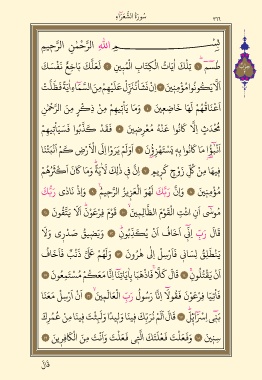 سُورَةُ الشُّعَرَاءِ ٣٦٦
بِسْمِ اللهِ الرَّحْمٰنِ الرَّحِيمِ
طٰسٓمٓ ۞ تِلْكَ اٰيَاتُ الْكِتَابِ الْمُبِينِ ۞ لَعَلَّكَ بَاخِعٌ نَفْسَكَ
اَلَّا يَكُونُوا مُؤْمِنِينَ ۞ اِنْ نَشَأْ نُنَزِّلْ عَلَيْهِمْ مِنَ السَّمَاءِ اٰيَةً فَظَلَّتْ
اَعْنَاقُهُمْ لَهَا خَاضِعِينَ ۞ وَمَا يَأْتِيهِمْ مِنْ ذِكْرٍ مِنَ الرَّحْمٰنِ
مُحْدَثٍ اِلَّا كَانُوا عَنْهُ مُعْرِضِينَ ۞ فَقَدْ كَذَّبُوا فَسَيَأْتِيهِمْ
اَنْبٰٓؤُا مَا كَانُوا بِهِ يَسْتَهْزِؤُنَ ۞ اَوَلَمْ يَرَوْا اِلَى الْاَرْضِ كَمْ اَنْبَتْنَا
فِيهَا مِنْ كُلِّ زَوْجٍ كَرِيمٍ ۞ اِنَّ فِي ذٰلِكَ لَاٰيَةً وَمَا كَانَ اَكْثَرُهُمْ
مُؤْمِنِينَ ۞ وَاِنَّ رَبَّكَ لَهُوَ الْعَزِيزُ الرَّحِيمُ ۞ وَاِذْ نَادٰى رَبُّكَ
مُوسٰٓى اَنِ ائْتِ الْقَوْمَ الظَّالِمِينَ ۞ قَوْمَ فِرْعَوْنَ اَلَا يَتَّقُونَ ۞
قَالَ رَبِّ اِنِّي اَخَافُ اَنْ يُكَذِّبُونِ ۞ وَيَضِيقُ صَدْرِي وَلَا
يَنْطَلِقُ لِسَانِي فَاَرْسِلْ اِلٰى هٰرُونَ ۞ وَلَهُمْ عَلَيَّ ذَنْبٌ فَاَخَافُ
اَنْ يَقْتُلُونِ ۞ قَالَ كَلَّا فَاذْهَبَا بِاٰيَاتِنَا اِنَّا مَعَكُمْ مُسْتَمِعُونَ ۞
فَأْتِيَا فِرْعَوْنَ فَقُولَا اِنَّا رَسُولُ رَبِّ الْعَالَمِينَ ۞ اَنْ اَرْسِلْ مَعَنَا
بَنِي اِسْرَائِلَ ۞ قَالَ اَلَمْ نُرَبِّكَ فِينَا وَلِيدًا وَلَبِثْتَ فِينَا مِنْ عُمُرِكَ
سِنِينَ ۞ وَفَعَلْتَ فَعْلَتَكَ الَّتِي فَعَلْتَ وَاَنْتَ مِنَ الْكَافِرِينَ ۞
قَالَ